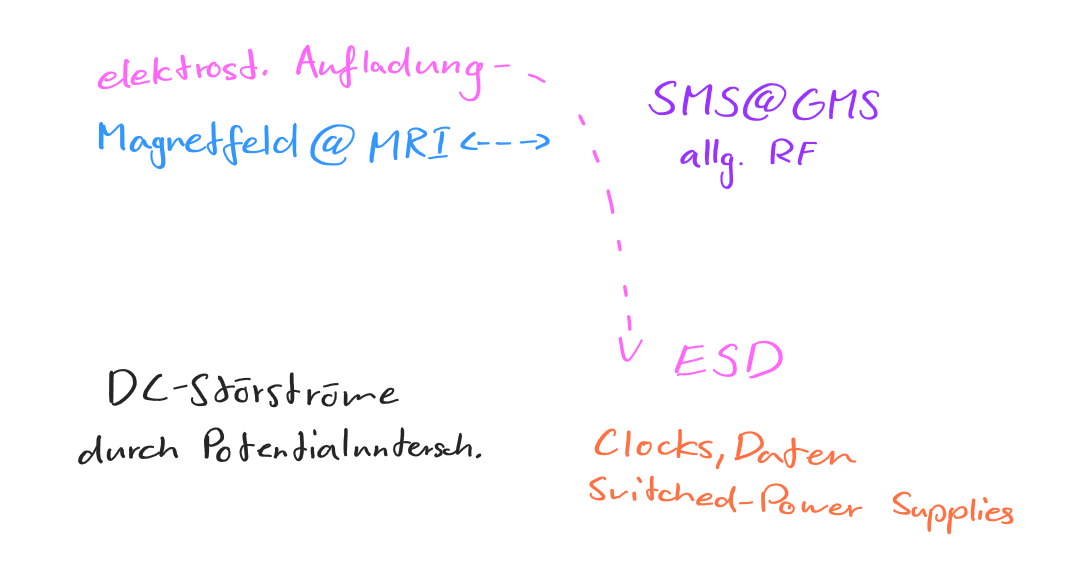 elektrost. Aufladung
Magnetfeld @ MRI <--->
SMS@GMS
allg. RF
ESD
DC-Störströme
durch Potentialuntersch.
Clocks, Daten
Switched-Power Supplies